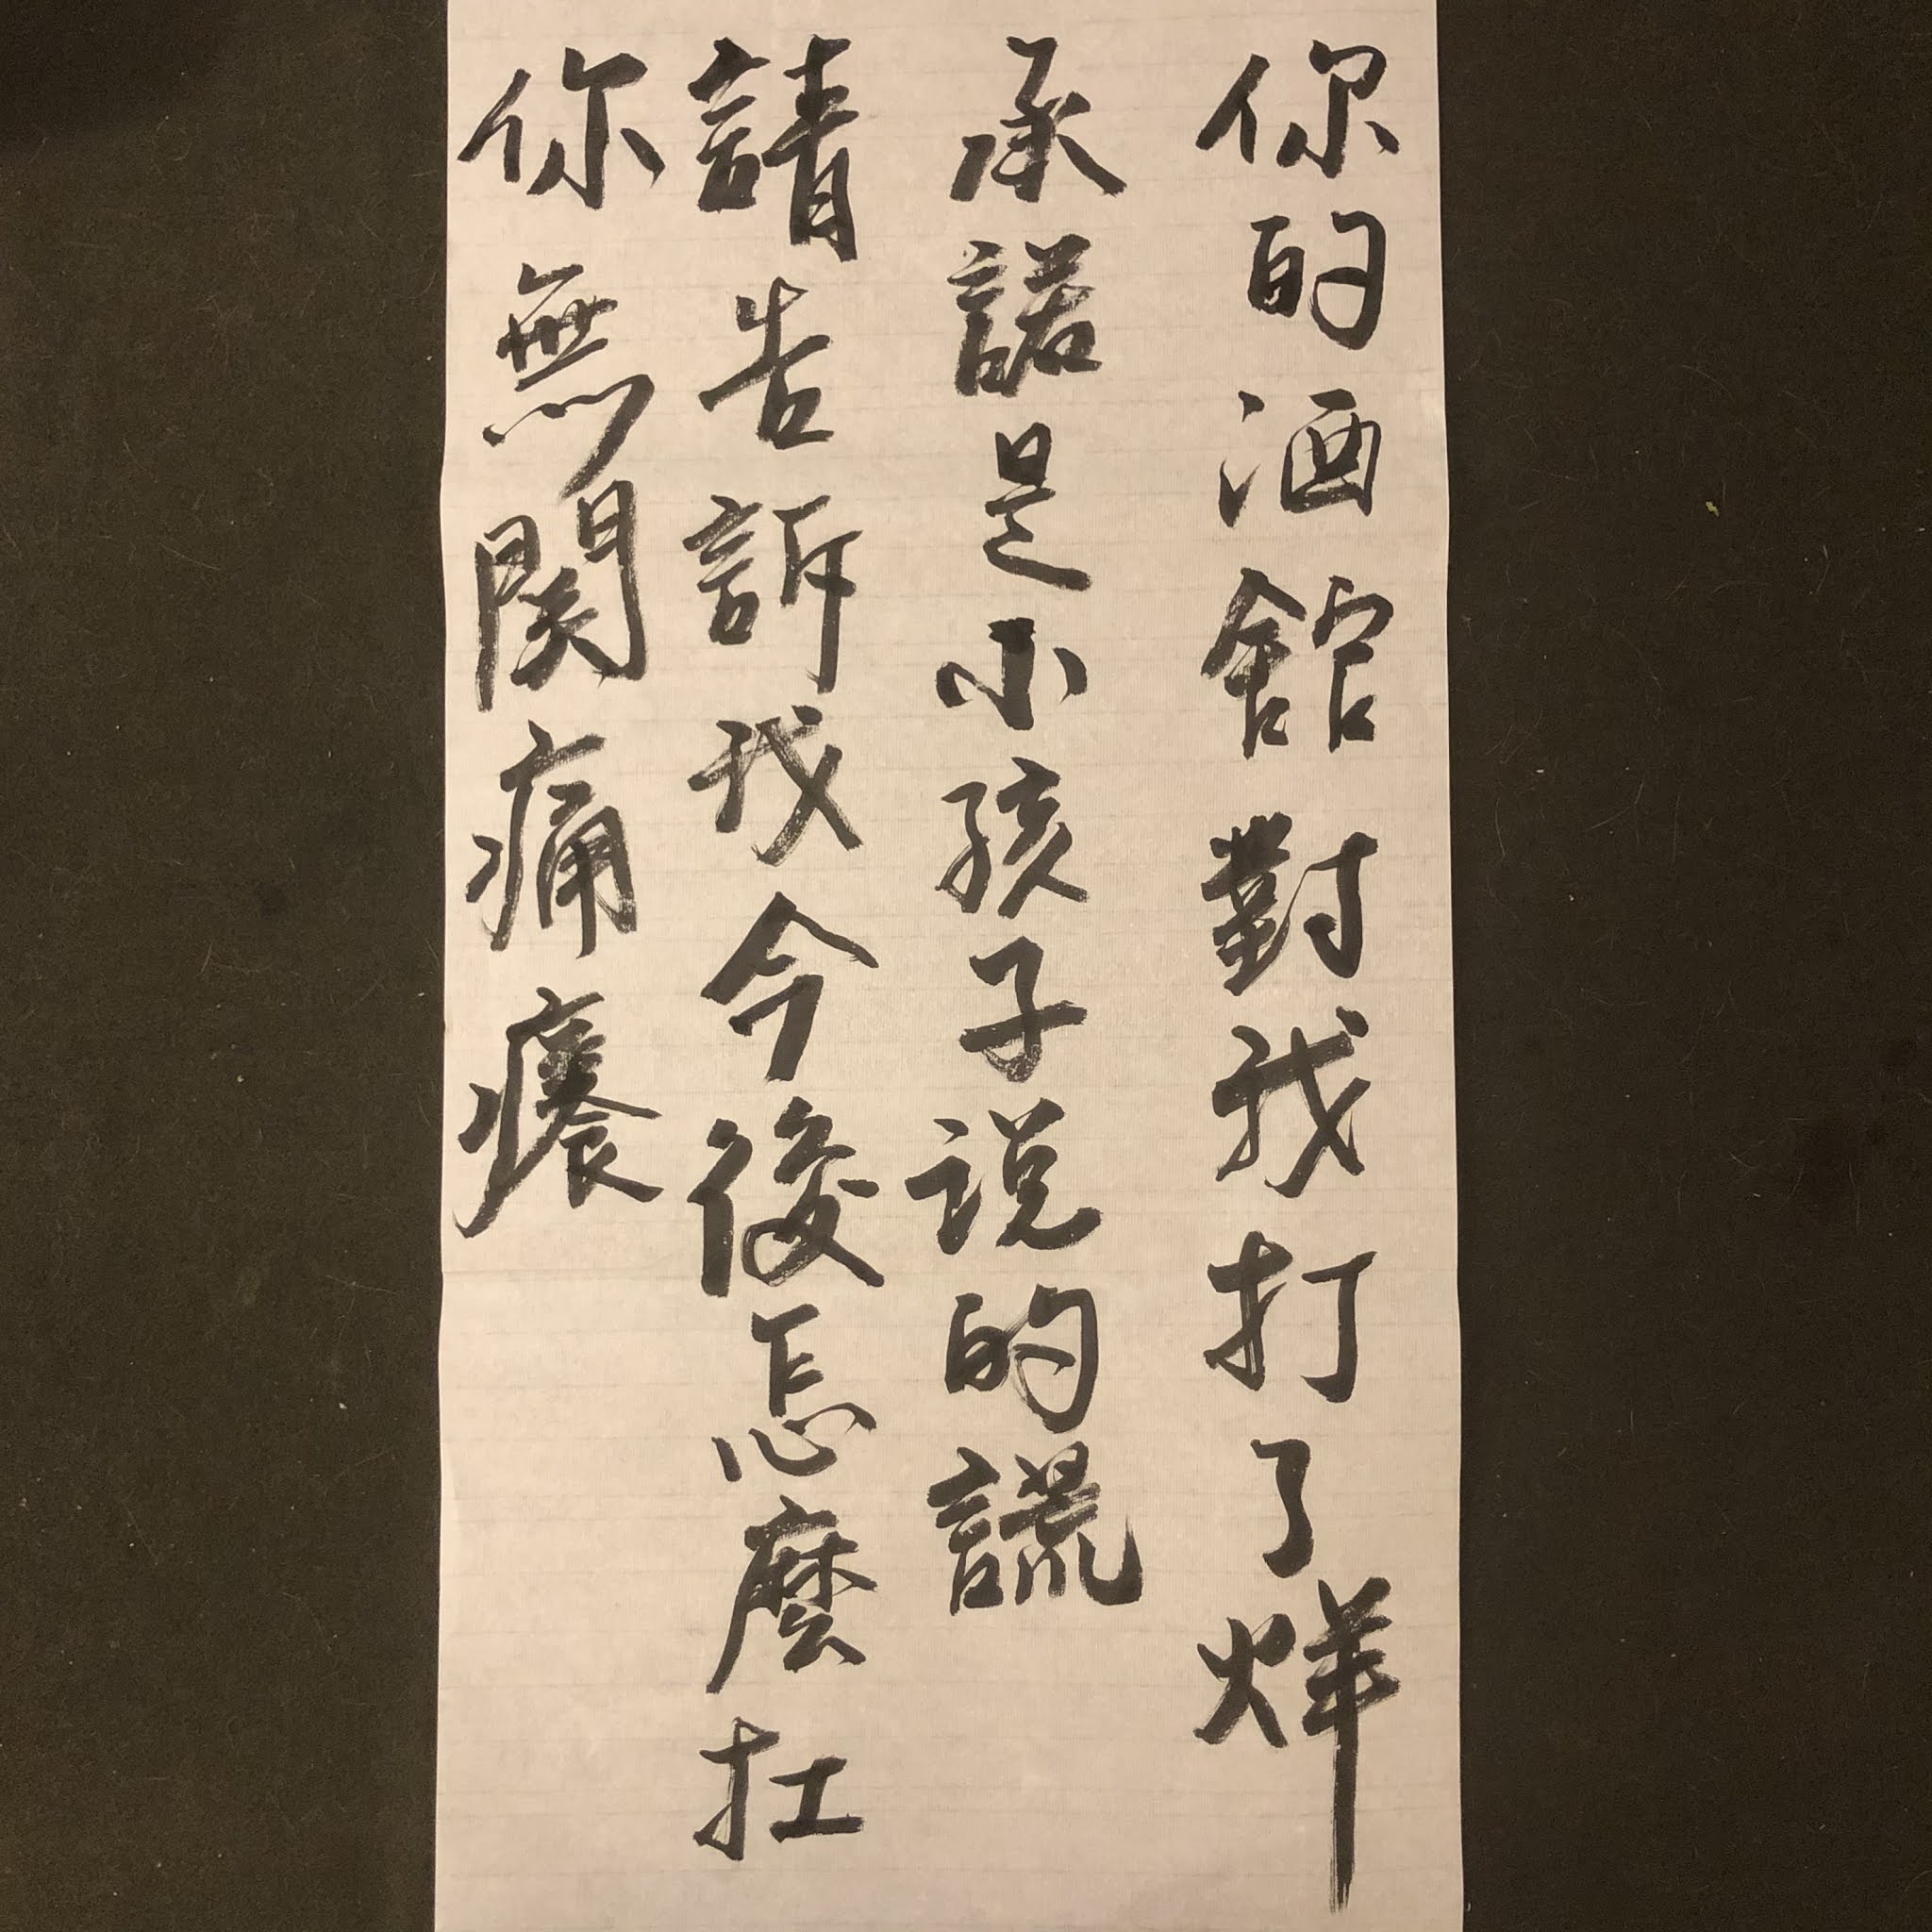 你的酒館對我打了烊
承諾是小孩子说的謊
請告訴我今後怎麼扛
你無関痛癢